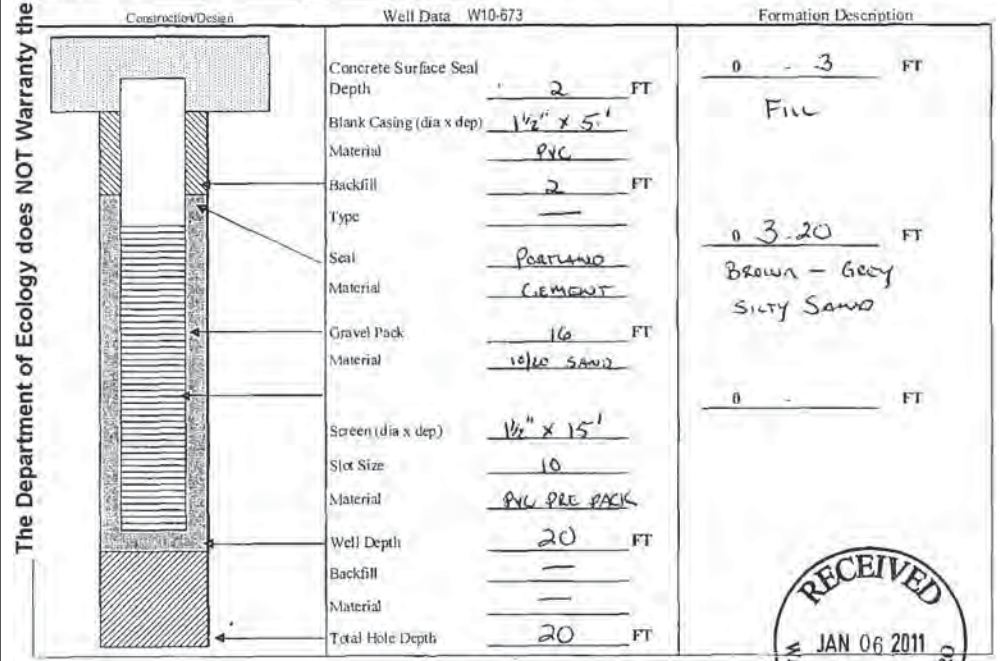 The Department of Ecology does NOT Warranty the
Construction/Design
Well Data W10-673
Formation Description
Concrete Surface Seal
Depth 2 FT
Blank Casing (dia x dep) 1½" x 5'
Material PVC
Backfill 2 FT
Type —
Seal PORTLAND
Material CEMENT
Gravel Pack 16 FT
Material 10/20 SAND
Screen (dia x dep) 1½" x 15'
Slot Size 10
Material PVC PRE PACK
Well Depth 20 FT
Backfill —
Material —
Total Hole Depth 20 FT
0 - 3 FT
FILL
0 3-20 FT
BROWN - GREY
SILTY SAND
0 - FT
RECEIVED
JAN 06 2011